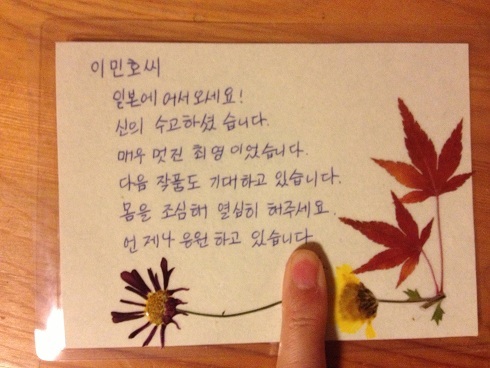 이민호씨
일본에 어서오세요!
신의 수고하셨 습니다.
매우 멋진 최영 이었습니다.
다음 작품도 기대하고 있습니다.
몸을 조심해 열심히 해주세요.
언제나 응원 하고 있습니다